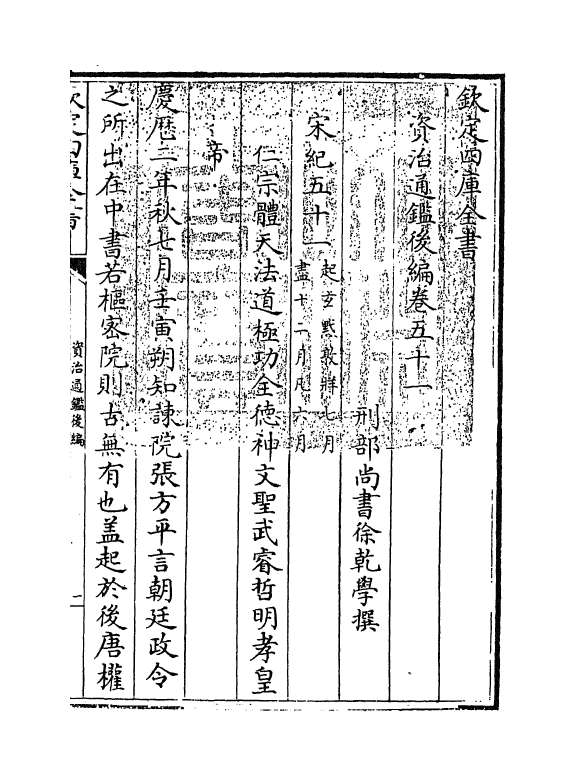 欽定四庫全書
資治通鑑後編卷五十一
刑部尚書徐乾學撰
宋紀五十一
起玄黓敦牂七月
盡十二月凡六月
仁宗體天法道極功全徳神文聖武睿哲明孝皇
帝
慶歴二年秋七月壬寅朔知諫院張方平言朝廷政令
之所出在中書若樞密院則古無有也盖起於後唐權
欽定四庫全書
資治通鑑後編